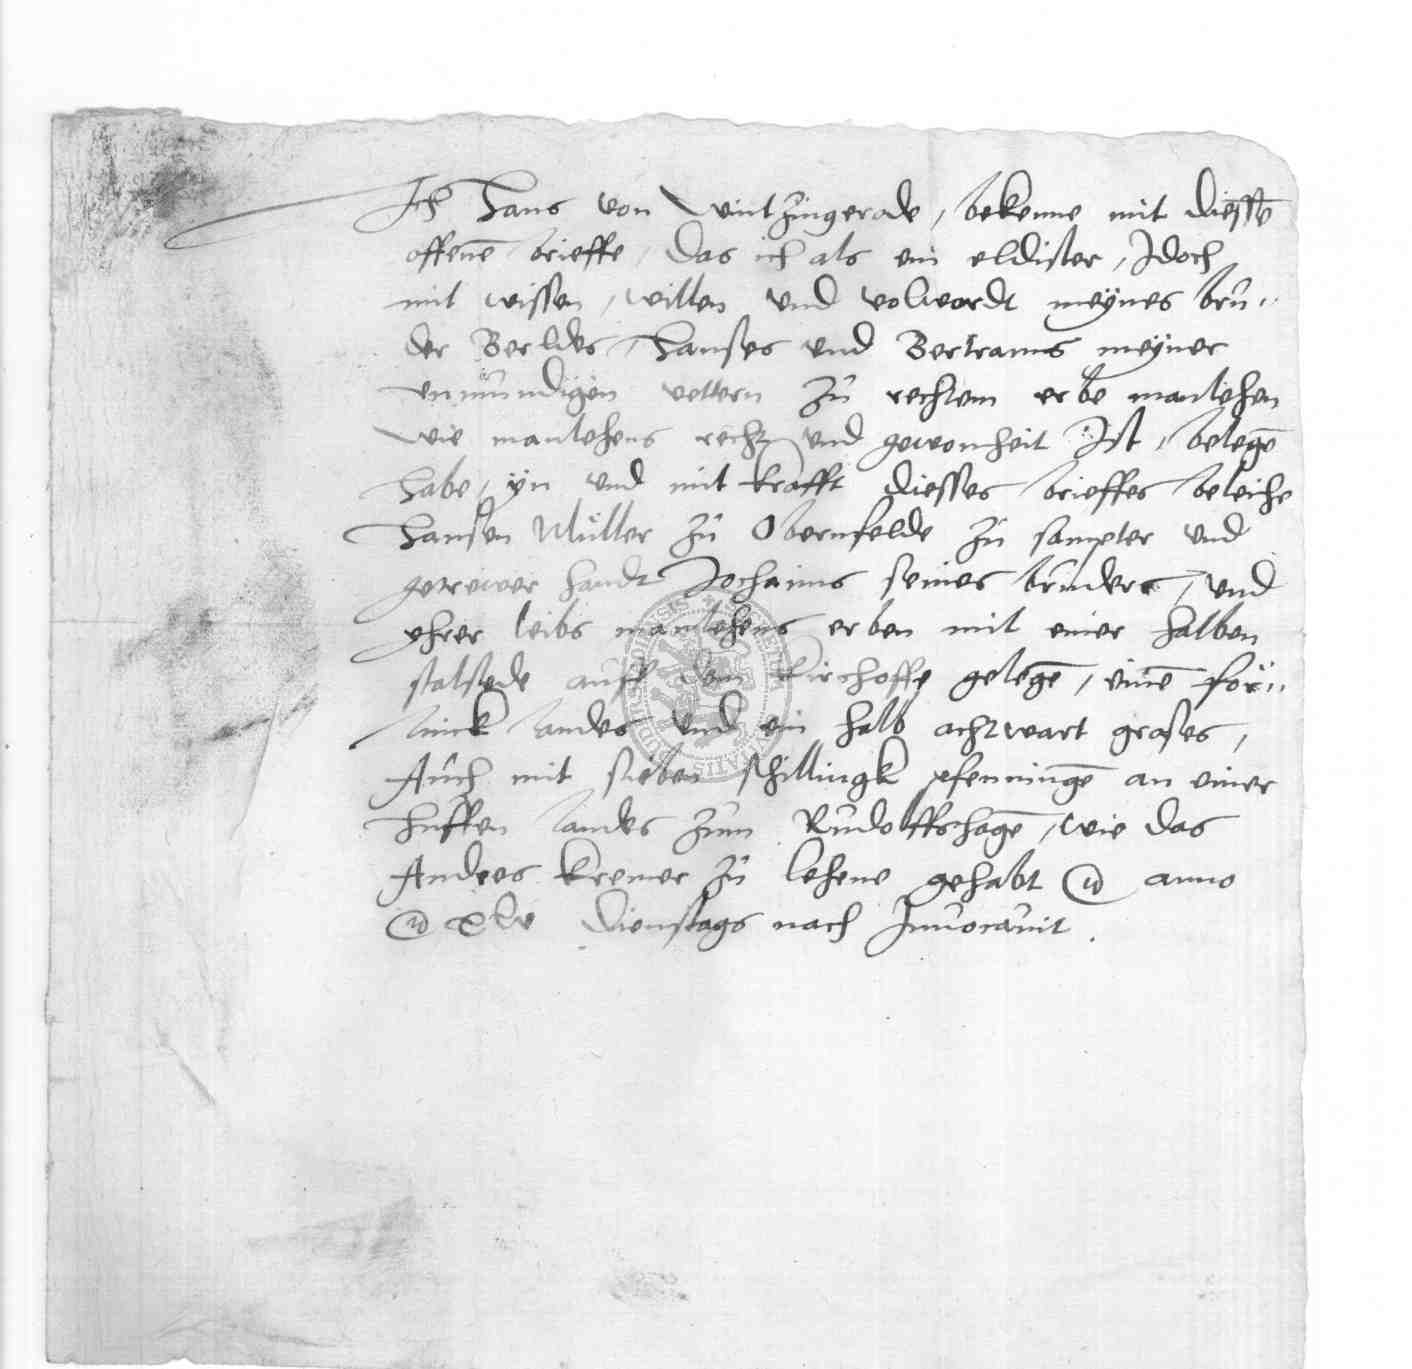 Ich Hans von Wintzingerode, bekenne mit diessē
offenē brieffe, das ich als ein eldister, Idoch
mit wissen, willen und volwordt meynes brů-
der Berldes, Hanses und Bertrams meyner
unmundigen vettern zů rechtem erbe manlehen
wie manlehens recht und gewonheit Ist, belegē
habe, yn und mit krafft diesses brieffes beleihe
Hansen Müller zů Obernfelde zů sampter und
getrewer handt Jochaims seines brůders, und
ehrer leibs manlehens erben mit einer halben
stalstede auff dem kirchoffe gelegē, einē for-
linck landes und ein halb achtwart grases,
Aůch mit sieben schillingk pfenningē an einer
hůffen landes zům Růdolffshagē, wie das
Andres kremer zů lehene gehabt anno
xlv Dienstags nach Invocavit.